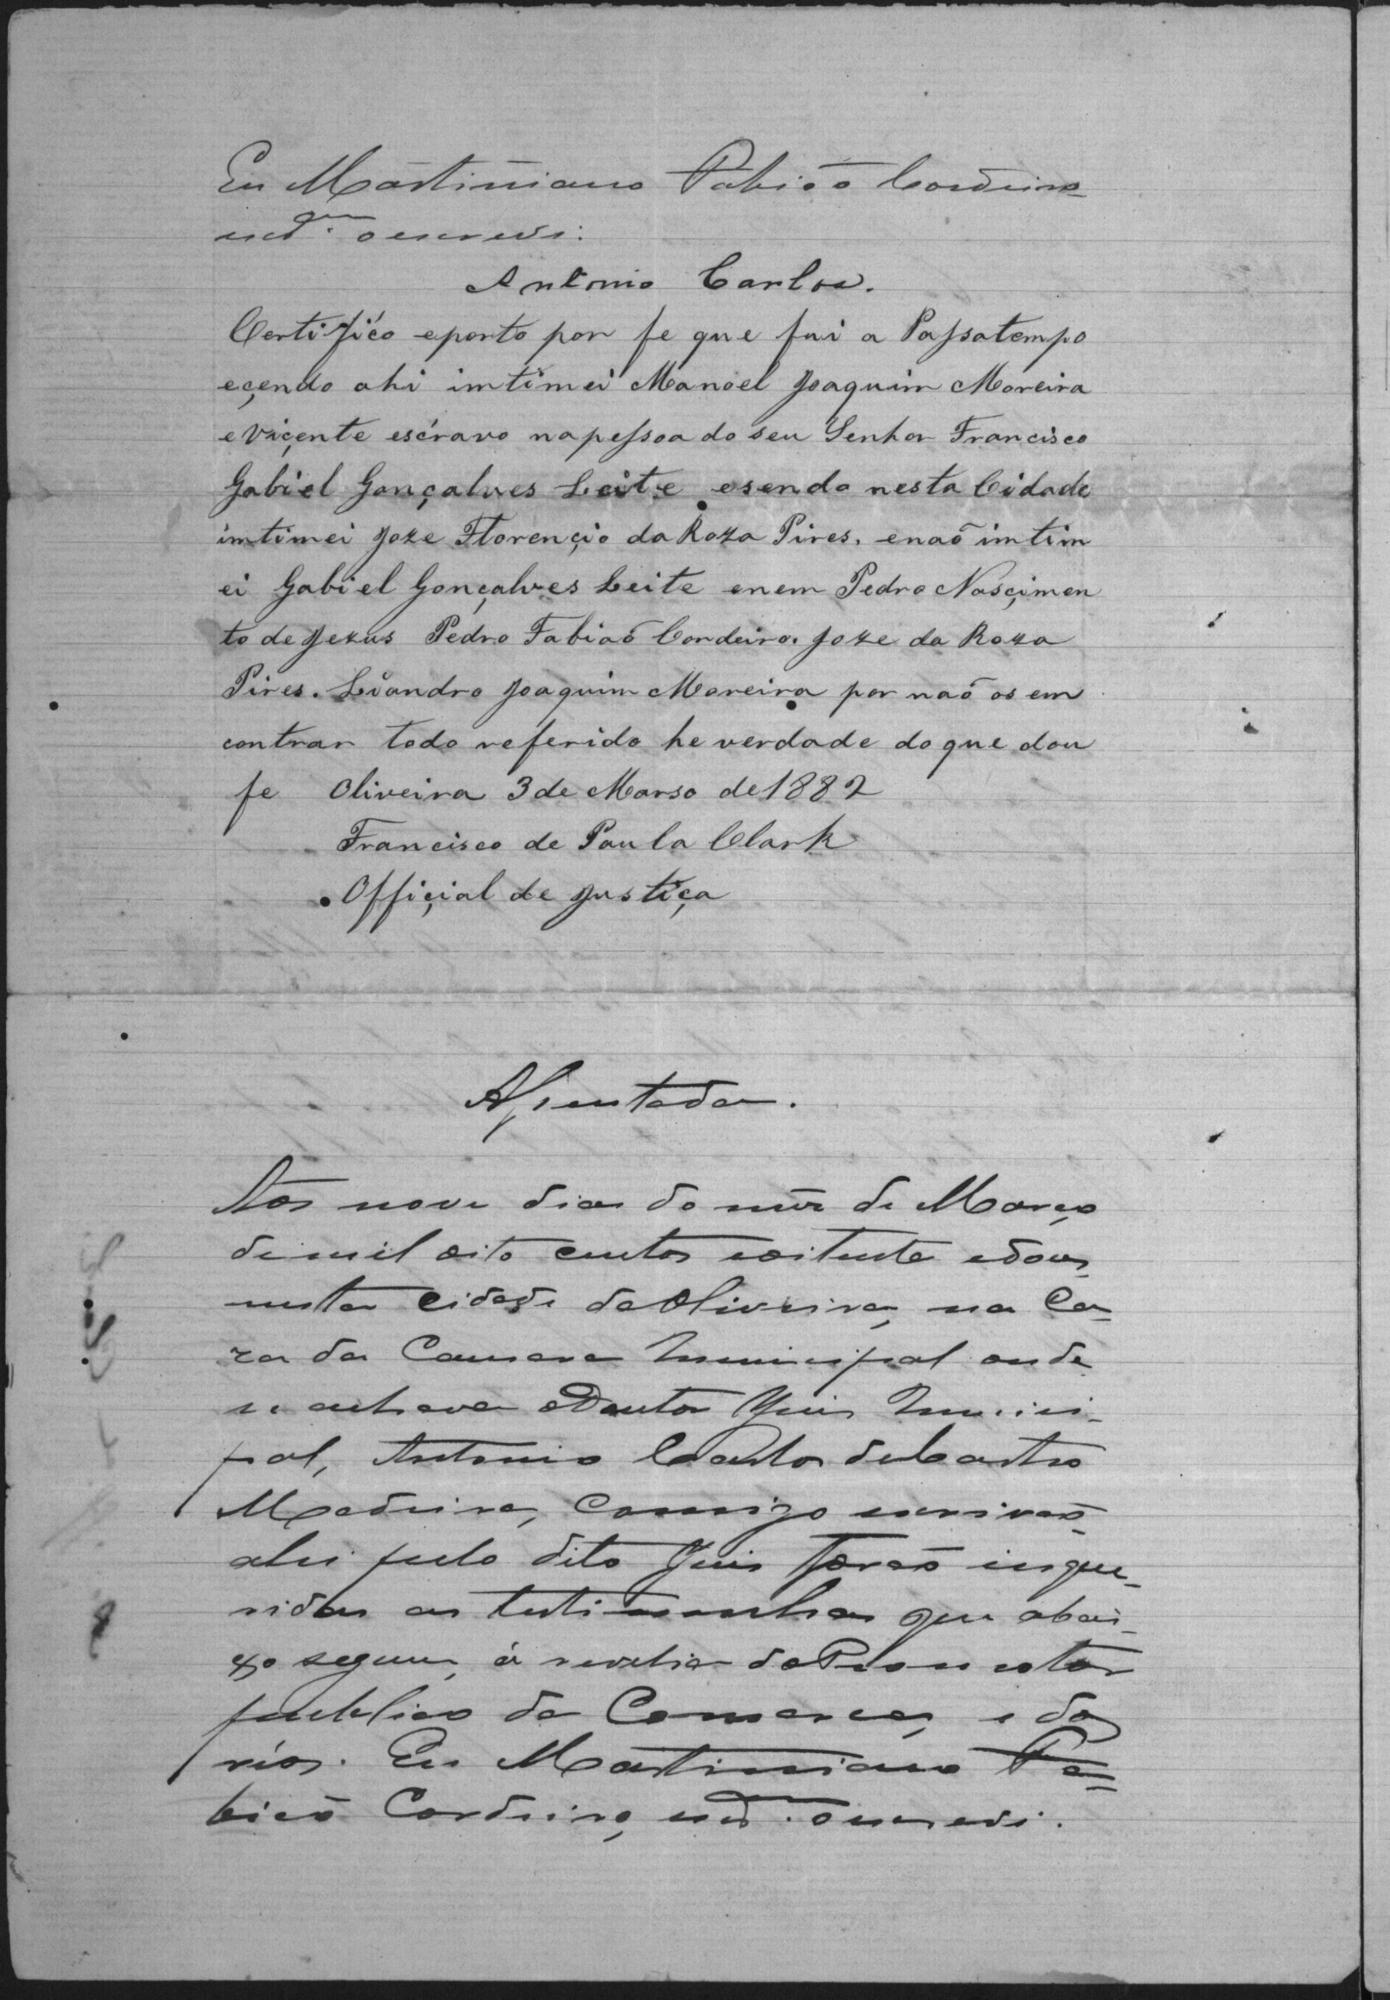 Eu Martiniano Fabião Cordeiro
escr.ᵃᵐ o escrevi.
Antonio Carlos.
Certifico eporto por fe que fui a Passatempo
eçendo ahi imtimei Manoel Joaquim Moreira
e Viçente escravo napessoa do seu Senhor Francisco
Gabiel Gonçalves Leite esendo nesta Cidade
imtimei Joze Florençio da Roza Pires. enaõ imtim
ei Gabiel Gonçalves Leite enem Pedro Nasçimen
to de Jezus Pedro Fabiaõ Cordeiro. Joze da Roza
Pires. Liandro Joaquim Moreira por naõ os em
contrar todo referido he verdade do que dou
fe Oliveira 3 de Marso de 1882
Francisco de Paula Clark
Offiçial de Justiça
Assentada.
Aos nove dias do mêz de Março
de mil oito centos eoitenta edous
nesta Cidade da Oliveira, na Ca-
za da Camara Municipal onde
se achava o Doutor Juis Munici-
pal, Antonio Carlos de Castro
Madeira, Comigo escrivaõ
ahi pelo dito Juis foraõ inque-
ridas as testimunhas que abai-
xo seguem, á revelia do Promotor
publico da Comarca, e dos
réos. Eu Martiniano Fa-
bião Cordeiro, escr. o escrevi.